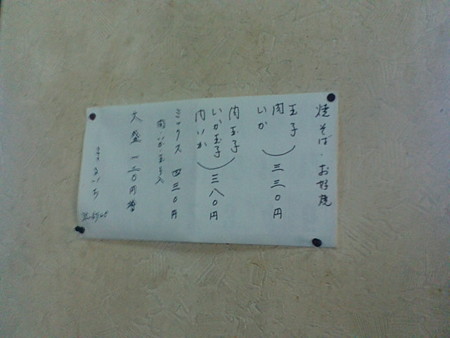 焼そば・お好焼
玉子
肉
いか
三三〇円
肉玉子
いか玉子
肉いか
三八〇円
ミックス 四三〇円
肉いか玉子入
大盛 一二〇円増